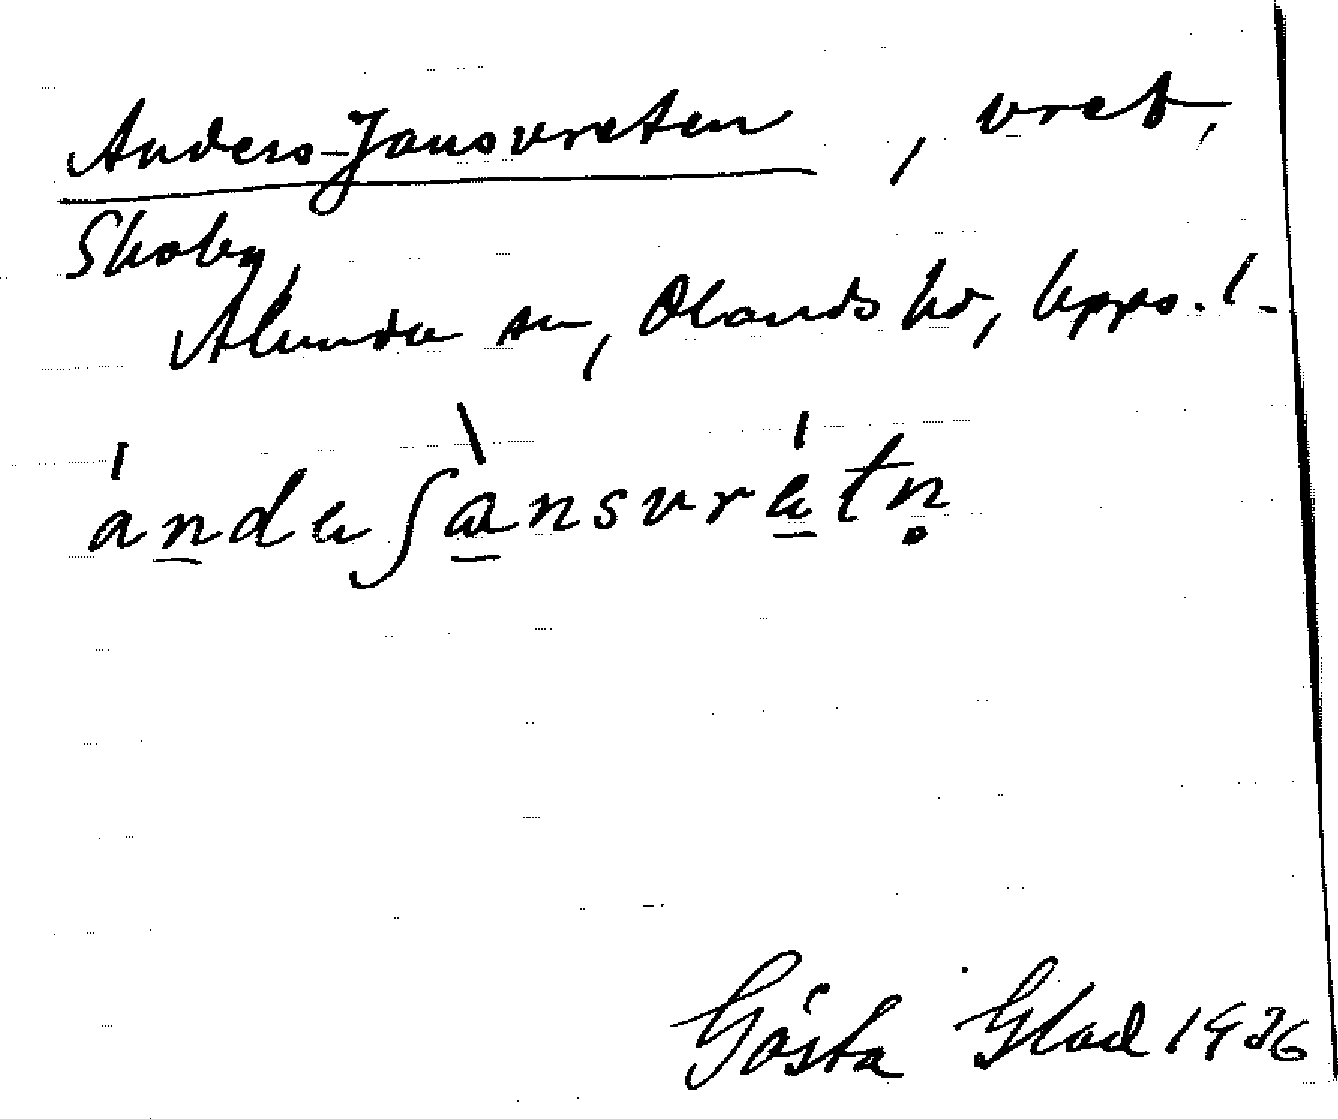 Anders-Jansvreten, vret,
Skoby,
Alunda sn, Olands hd, Upps. l.
andeʃansvrätn̥
Gösta Glad 1936